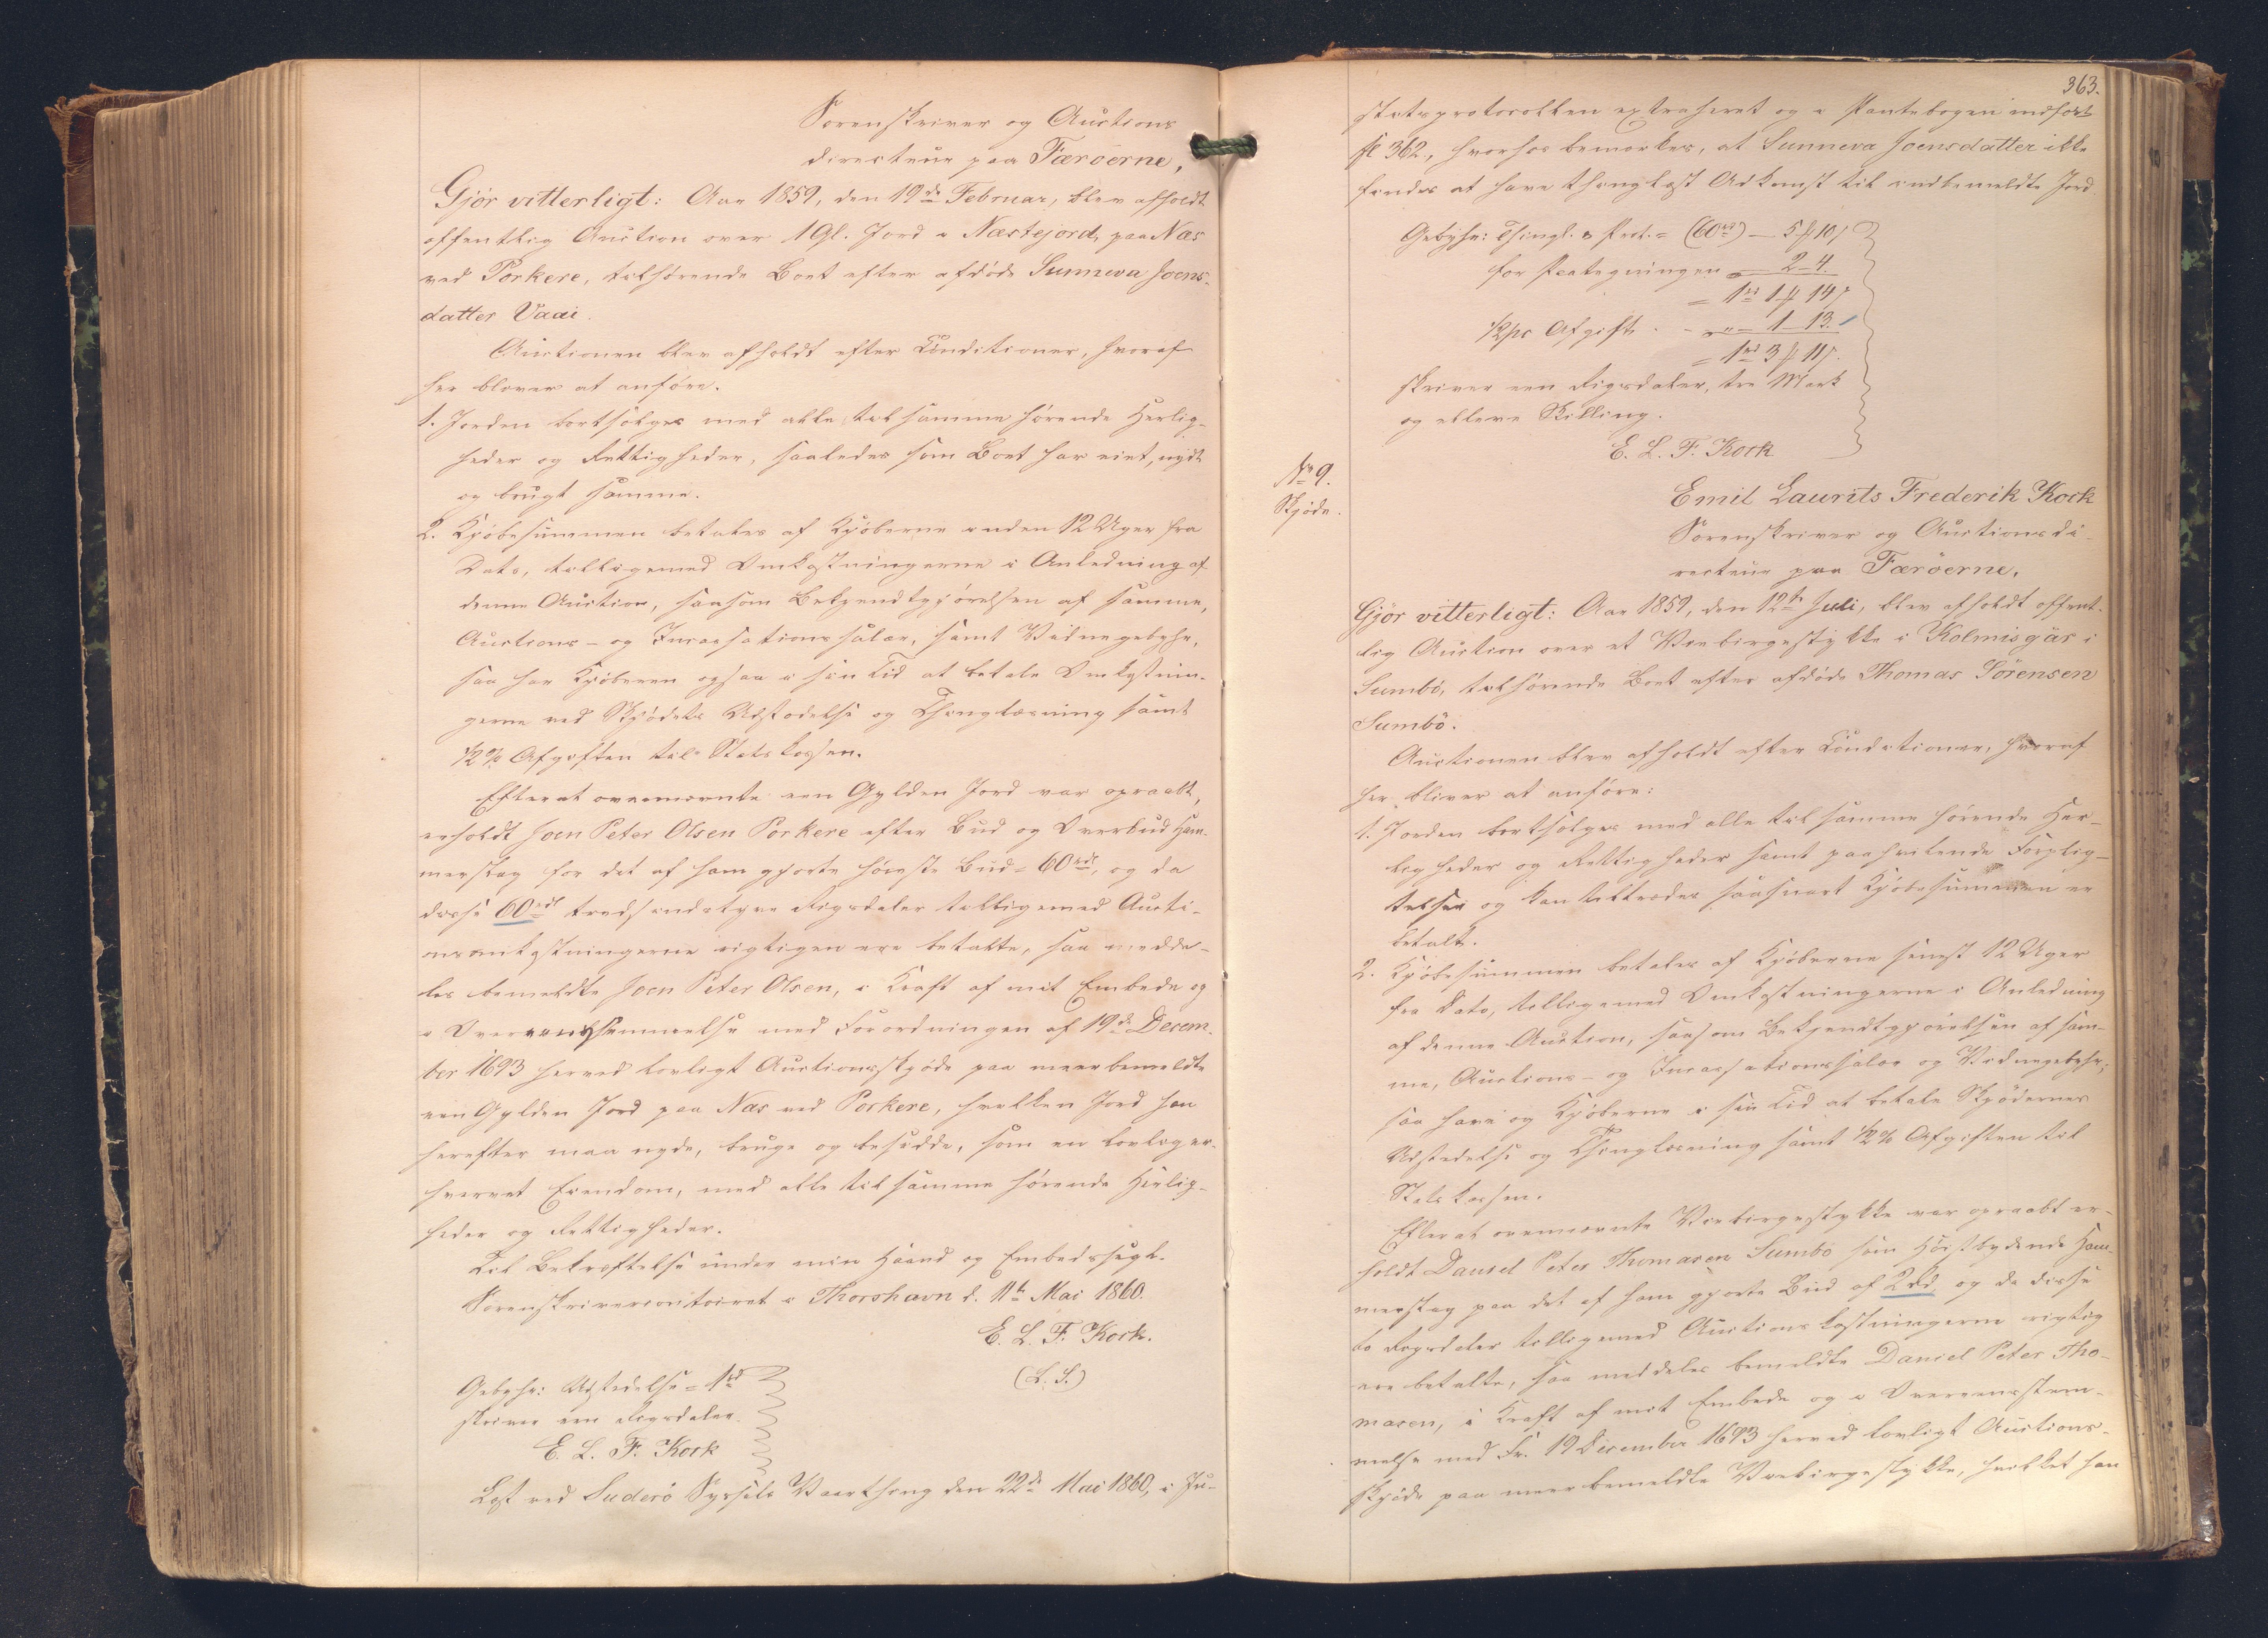 Sorenskriver og Auctions
directeur paa Færöerne,
Gjör vitterligt: Aar 1859, den 19de Februar, blev afholdt
offentlig Auction over 1 Gl. Jord i Næstejord, paa Næs
ved Porkere, tilhörende Boet efter afdöde Sunneva Joens-
datter Vaai.
Auctionen blev afholdt efter Conditioner, hvoraf
her bliver at anföre.
1. Jorden bortsælges med alle til samme hörende Herlig-
heder og Rettigheder, saaledes som Boet har eiet, nydt
og brugt samme.
2. Kjöbesummen betales af Kjöberne inden 12 Uger fra
Dato, tilligemed Omkostningerne i Anledning af
denne Auction, saasom Bekjendtgjörelsen af samme,
Auctions- og Incassationssalær, samt Vidnegebyhr,
saa har Kjöberen ogsaa i sin Tid at betale Omkostnin-
gerne ved Skjödets Udstedelse og Thinglæsning samt
1/2 % Afgiften til Statskassen.
Efterat ovennævnte een Gylden Jord var opraabt,
erholdt Joen Peter Olsen Porkere efter Bud og Overbud Ham-
merslag for det af ham gjorte höieste Bud = 60 rdl, og da
disse 60 rdl tredsindstyve Rigsdaler tilligemed Aucti-
onsomkostningerne rigtigen ere betalte, saa medde-
les bemeldte Joen Peter Olsen, i Kraft af mit Embede og
i Overeensstemmelse med Forordningen af 19de Decem-
ber 1693 herved lovligt Auctionsskjöde paa meerbemeldte
een Gylden Jord paa Næs ved Porkere, hvilken Jord han
herefter maa nyde, bruge og besidde, som en lovlig er-
hvervet Eiendom, med alle til samme hörende Herlig-
heder og Rettigheder.
Til Bekræftelse under min Haand og Embedssegl.
Sorenskrivercontoiret i Thorshavn d. 11te Mai 1860.
E. L. F. Kock.
(L. S.)
Gebyhr: Udstedelse = 1 rd
skriver een Rigsdaler.
E. L. F. Kock
Læst ved Suderö Syssels Vaarthing den 22de Mai 1860, i Ju-
363.
stitsprotocollen extraheret og i Pantebogen indfört
fl 362., hvorhos bemærkes, at Sunneva Joensdatter ikke
findes at have thinglæst Adkomst til indbemeldte Jord.
Gebyhr: Thingl. & Prot. = (60 rd) — 5 ₰ 10 ß
for Paategningen — 2 – 4.
= 1 rd 1 ₰ 14 ß
1/2 pc Afgift - - „ – 1 – 13.
= 1 rd 3 ₰ 11 ß.
skriver een Rigsdaler, tre Mark
og elleve Skilling.
E. L. F. Kock
No 9.
Skjöde.
Emil Laurits Frederik Kock
Sorenskriver og Auctionsdi-
recteur paa Færöerne,
Gjör vitterligt: Aar 1859, den 12te Juli, blev afholdt offent-
lig Auction over et Træbirgestykke i Kolmisgär i
Sumbö, tilhörende Boet efter afdöde Thomas Sörensen
Sumbö.
Auctionen blev afholdt efter Conditioner, hvoraf
her bliver at anföre:
1. Jorden bortsælges med alle til samme hörende Her-
ligheder og Rettigheder samt paahvilende Forplig-
telser og kan tiltrædes saasnart Kjöbesummen er
betalt.
2. Kjöbesummen betales af Kjöberne senest 12 Uger
fra Dato, tilligemed Omkostningerne i Anledning
af denne Auction, saasom Bekjendtgjörelsen af sam-
me, Auctions- og Incassationssalær og Vidnegebyhr,
saa have og Kjöberne i sin Tid at betale Skjödernes
Udstedelse og Thinglæsning samt 1/2 % Afgiften til
Statskassen.
Efterat ovennævnte Træbirgestykke var opraabt er-
holdt Daniel Peter Thomasen Sumbö som Höistbydende Ham-
merslag paa det af ham gjorte Bud af 2 rd, og da disse
to Rigsdaler tilligemed Auctions kostningerne rigtig
ere betalte, saa meddeles bemeldte Daniel Peter Tho-
masen, i Kraft af mit Embede og i Overeensstem-
melse med Fr. 19 December 1693 herved lovligt Auctions-
skjöde paa meerbemeldte Træbirgestykke, hvilket han